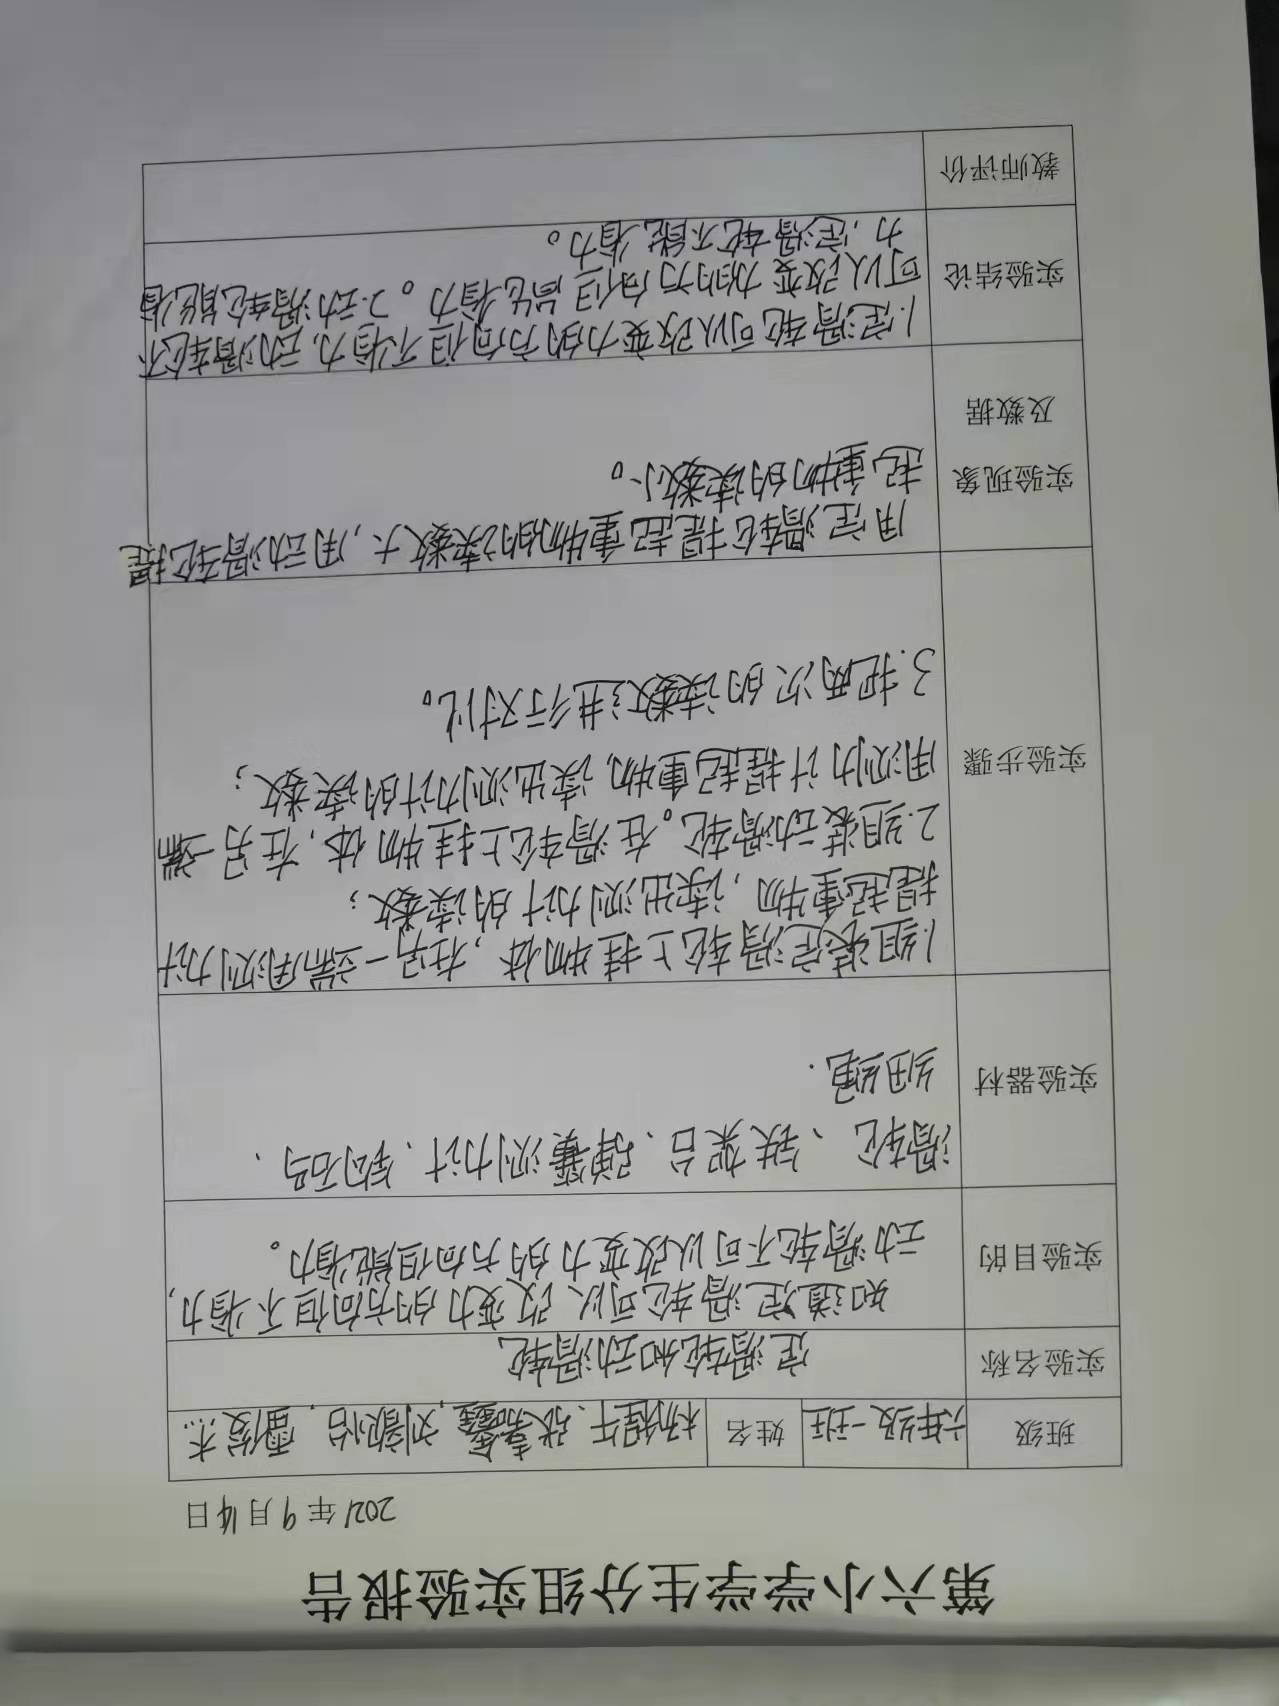 第六小学学生分组实验报告
2021年9月14日
班级 六年级一班 姓名 杨程午、张嘉鑫、刘歆怡、雷俊杰
实验名称 定滑轮和动滑轮
实验目的 知道定滑轮可以改变力的方向但不省力,
动滑轮不可以改变力的方向但能省力。
实验器材 滑轮、铁架台、弹簧测力计、钩码、
细绳.
实验步骤 1.组装定滑轮上挂物体,在另一端用测力计
提起重物,读出测力计的读数;
2.组装动滑轮。在滑轮上挂物体,在另一端
用测力计提起重物,读出测力计的读数;
3.把两次的读数进行对比。
实验现象 用定滑轮提起重物的读数大,用动滑轮提
及数据 起重物的读数小。
实验结论 1.定滑轮可以改变力的方向但不省力,动滑轮不
可以改变力的方向但能省力。2.动滑轮能省
力,定滑轮不能省力。
教师评价